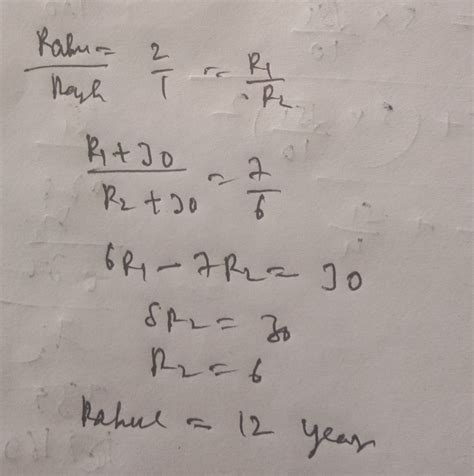 Rahu = 2/1 = R1/R2
R1 + 30 / R2 + 30 = 7/6
6R1 - 7R2 = 30
5R2 = 30
R2 = 6
Rahul = 12 years